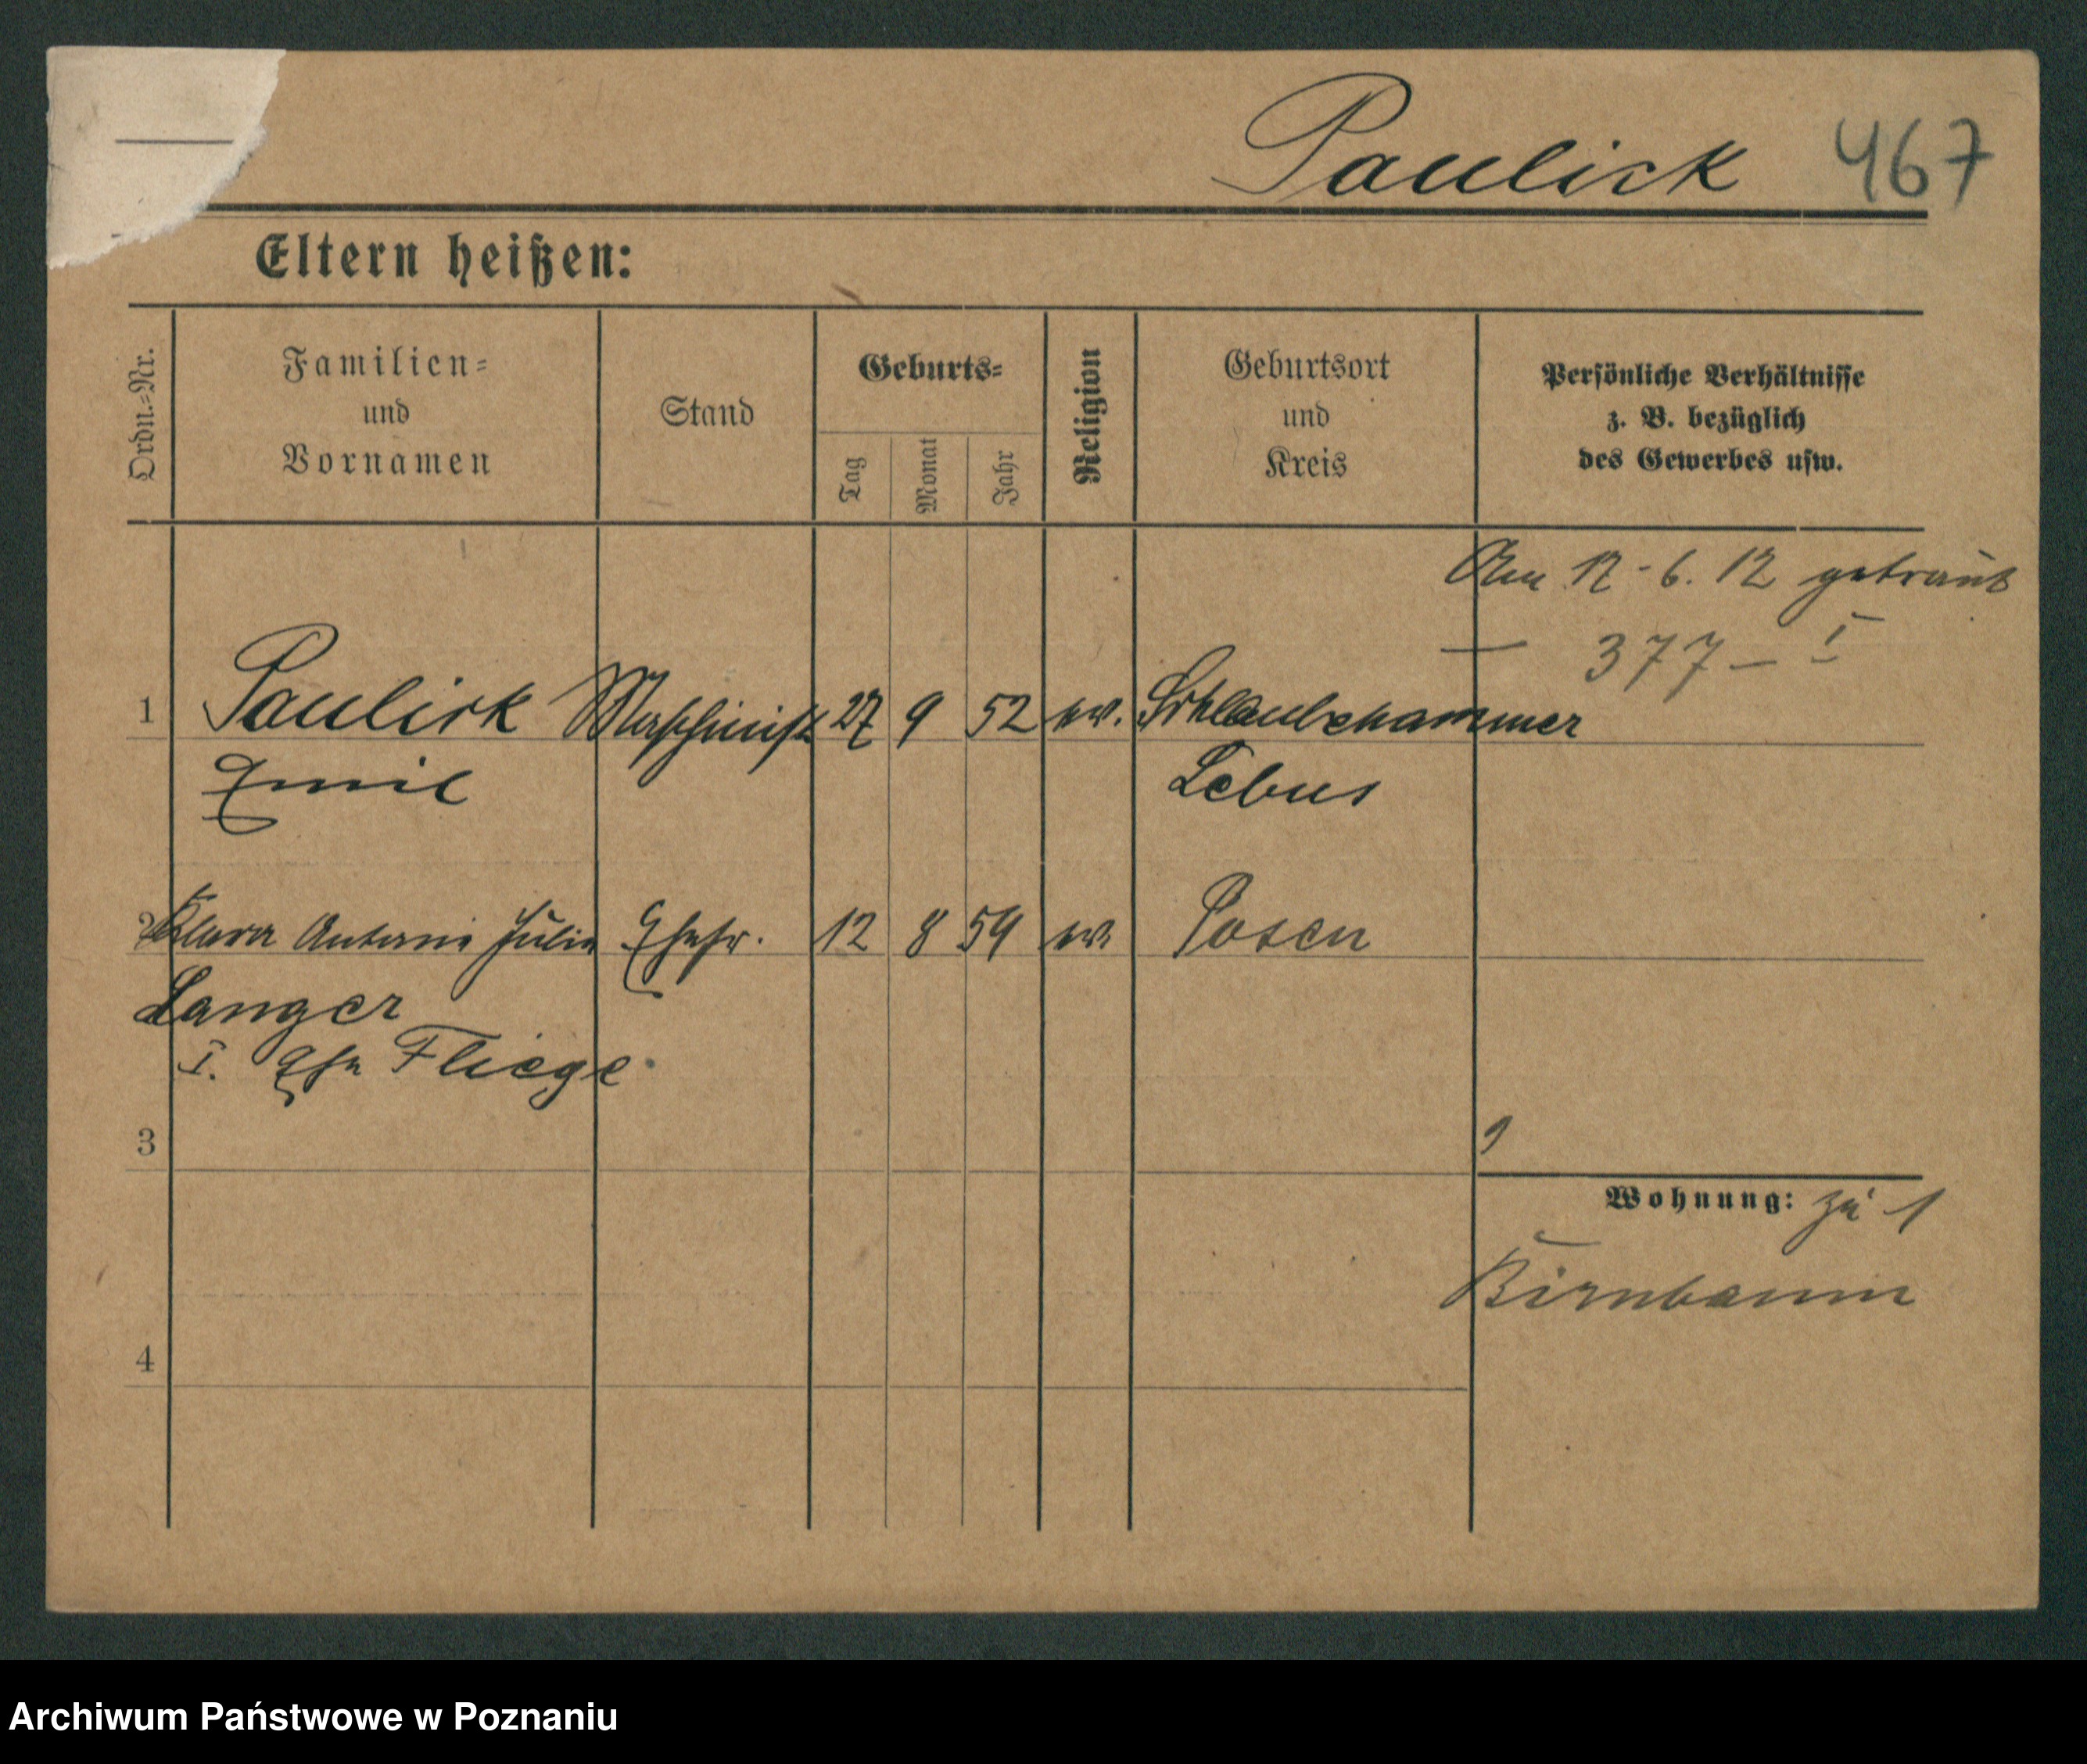 Paulick 467
Eltern heißen:
Ordn.=Nr.
Familien=
und
Vornamen
Stand
Geburts=
Tag
Monat
Jahr
Religion
Geburtsort
und
Kreis
Persönliche Verhältnisse
z. B. bezüglich
des Gewerbes usw.
Am 12-6. 12 getraut
377-I
1 Paulick Maschinist 27 9 52 ev. Schlaubehammer
Emil Lebus
2 Klara Antonie Julie Ehefr. 12 8 59 ev. Posen
Langer
I. Ehe Fliege
3
Wohnung: zu 1
Birnbaum
4
Archiwum Państwowe w Poznaniu